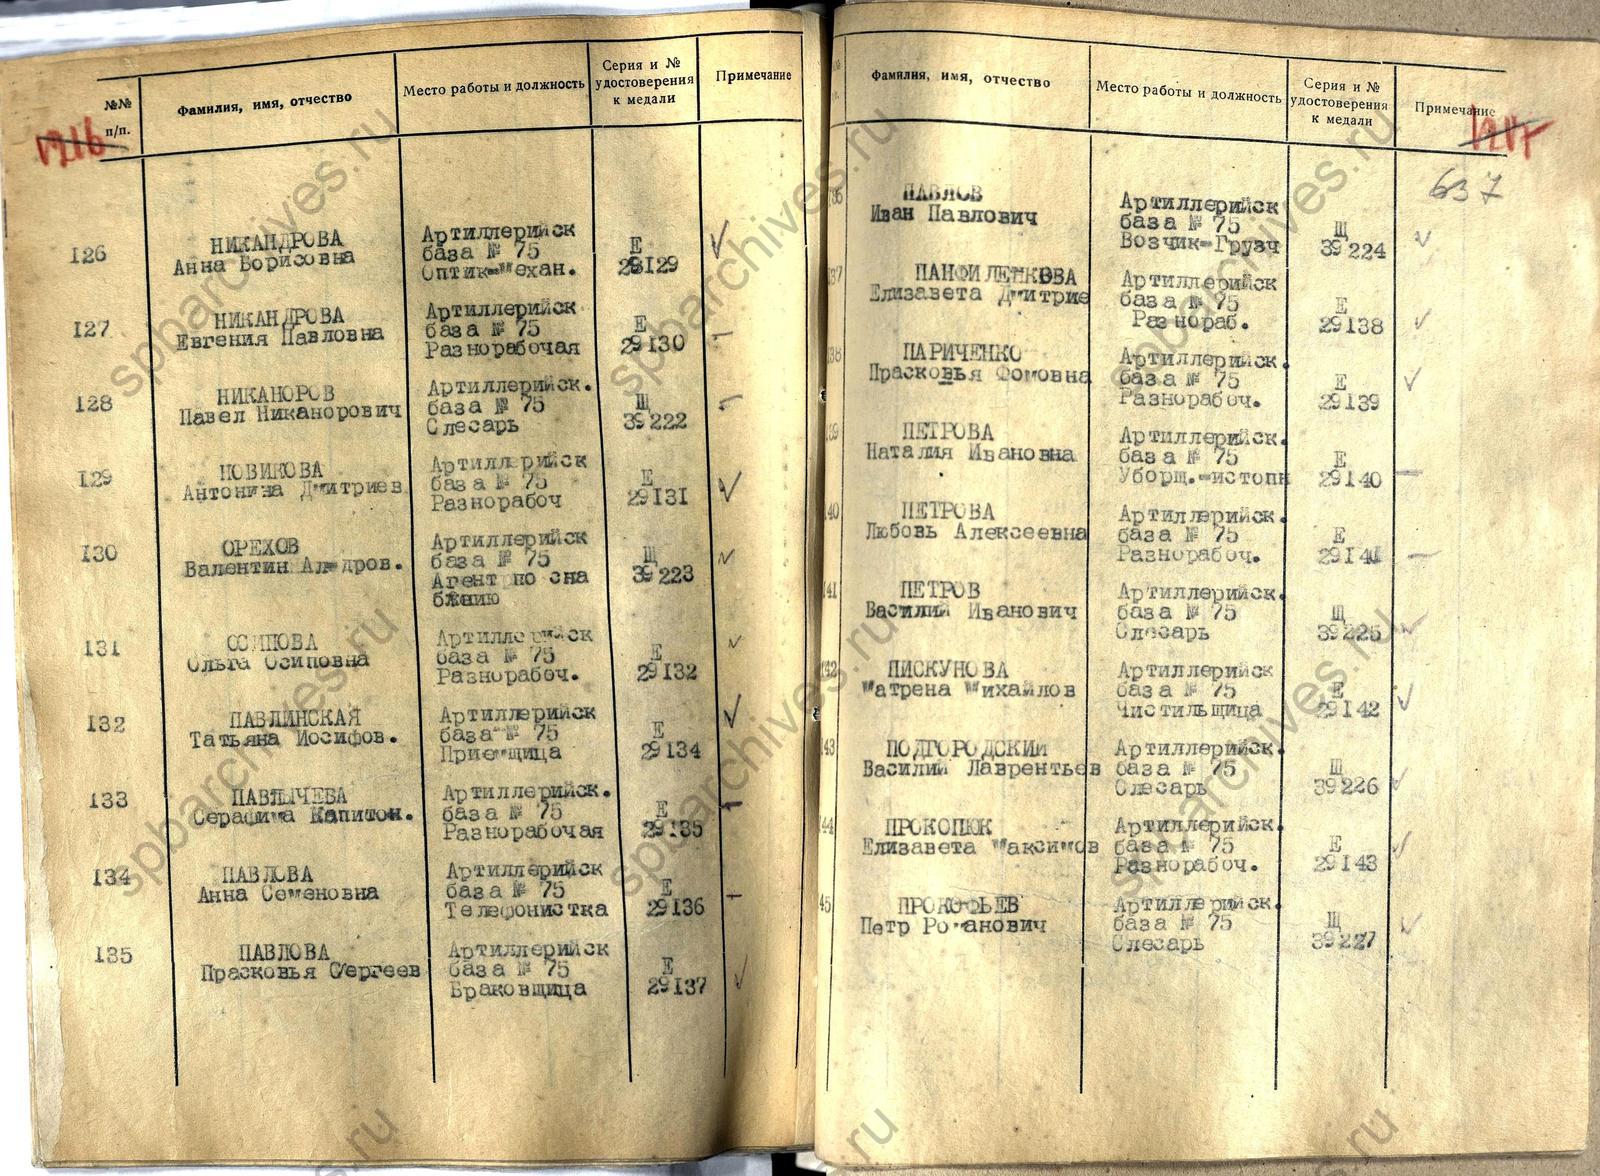 №№
п/п.
Фамилия, имя, отчество
Место работы и должность
Серия и №
удостоверения
к медали
Примечание
1216
126
НИКАНДРОВА
Анна Борисовна
Артиллерийск
база № 75
Оптик-механ.
Е
29129
127
НИКАНДРОВА
Евгения Павловна
Артиллерийск
база № 75
Разнорабочая
Е
29130
128
НИКАНОРОВ
Павел Никанорович
Артиллерийск.
база № 75
Слесарь
Щ
39222
129
НОВИКОВА
Антонина Дмитриев
Артиллерийск
база № 75
Разнорабоч
Е
29131
130
ОРЕХОВ
Валентин Ал-дров.
Артиллерийск
база № 75
Агент по сна
бжению
Щ
39223
131
ОСИПОВА
Ольга Осиповна
Артиллерийск
база № 75
Разнорабоч.
Е
29132
132
ПАВЛИНСКАЯ
Татьяна Иосифов.
Артиллерийск
база № 75
Приемщица
Е
29134
133
ПАВЛЫЧЕВА
Серафима Капитон.
Артиллерийск.
база № 75
Разнорабочая
Е
29135
134
ПАВЛОВА
Анна Семеновна
Артиллерийск
база № 75
Телефонистка
Е
29136
135
ПАВЛОВА
Прасковья Сергеев
Артиллерийск
база № 75
Браковщица
Е
29137
Фамилия, имя, отчество
Место работы и должность
Серия и №
удостоверения
к медали
Примечание
1217
637
36
ПАВЛОВ
Иван Павлович
Артиллерийск
база № 75
Возчик-Грузч
Щ
39224
37
ПАНФИЛЕНКОВА
Елизавета Дмитрие
Артиллерийск
база № 75
Разнораб.
Е
29138
38
ПАРИЧЕНКО
Прасковья Фомовна
Артиллерийск.
база № 75
Разнорабоч.
Е
29139
39
ПЕТРОВА
Наталия Ивановна
Артиллерийск.
база № 75
Уборщ.-истопн
Е
29140
40
ПЕТРОВА
Любовь Алексеевна
Артиллерийск.
база № 75
Разнорабоч.
Е
29141
41
ПЕТРОВ
Василий Иванович
Артиллерийск.
база № 75
Слесарь
Щ
39225
42
ПИСКУНОВА
Матрена Михайлов
Артиллерийск
база № 75
Чистильщица
Е
29142
43
ПОДГОРОДСКИЙ
Василий Лаврентьев
Артиллерийск.
база № 75
Слесарь
Щ
39226
44
ПРОКОПЮК
Елизавета Максимов
Артиллерийск.
база № 75
Разнорабоч.
Е
29143
45
ПРОКОФЬЕВ
Петр Романович
Артиллерийск.
база № 75
Слесарь
Щ
39227
spbarchives.ru
spbarchives.ru
spbarchives.ru
spbarchives.ru
spbarchives.ru
spbarchives.ru